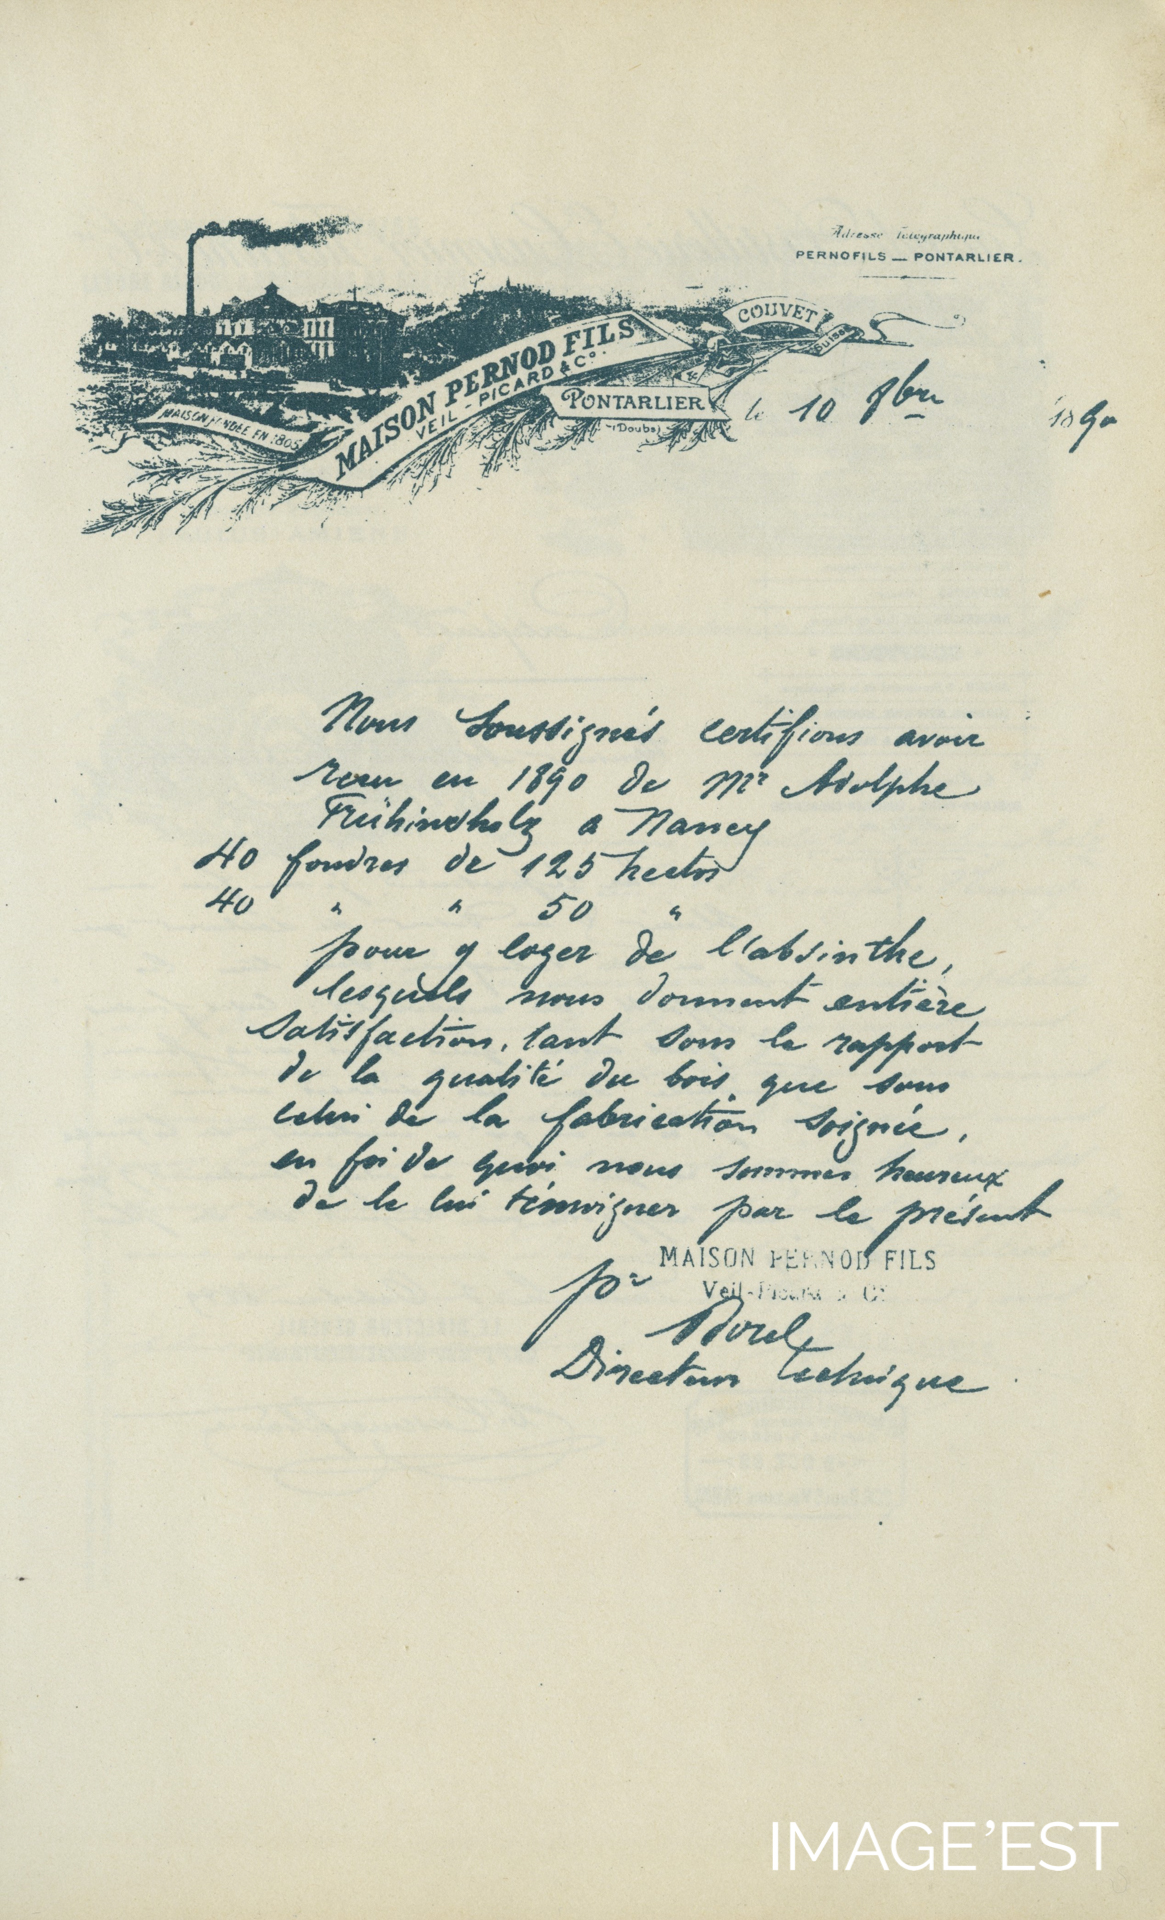 Adresse Télégraphique
PERNOFILS — PONTARLIER.
COUVET
Suisse
MAISON PERNOD FILS
VEIL - PICARD & Cº.
PONTARLIER
(Doubs)
MAISON FONDÉE EN 1805
le 10 8bre 1890
Nous soussignés certifions avoir
recu en 1890 de Mr Adolphe
Frühinsholz a Nancy
40 foudres de 125 hectos
40 " " 50 "
pour y loger de l'absinthe,
lesquels nous donnent entière
satisfaction, tant sous le rapport
de la qualité du bois que sous
celui de la fabrication soignée,
en foi de quoi nous sommes heureux
de le lui témoigner par le présent
pr MAISON PERNOD FILS
Veil-Picard & Cie
Borel
Directeur technique
IMAGE'EST